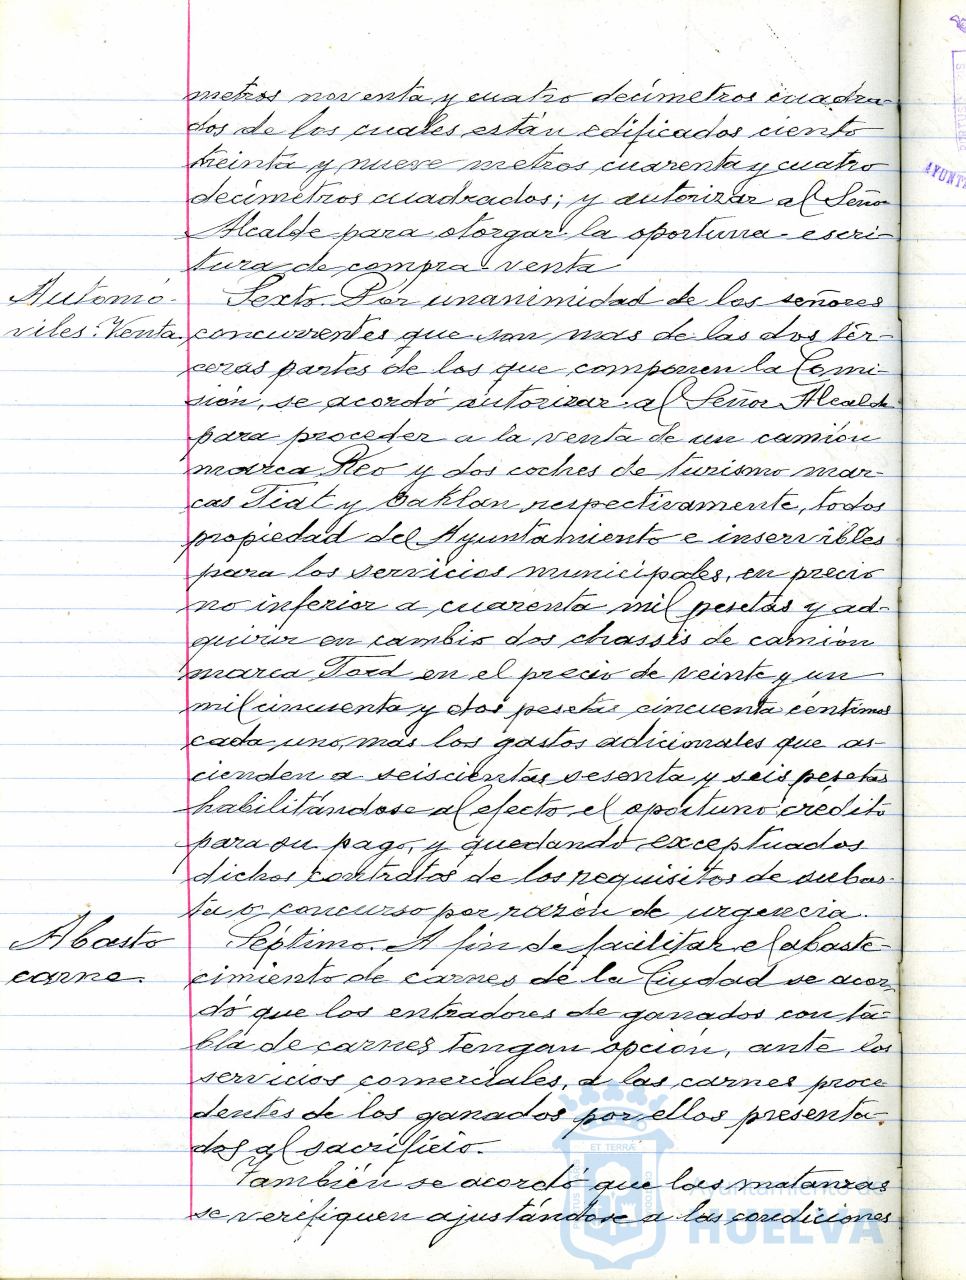 metros noventa y cuatro decímetros cuadra-
dos de los cuales están edificados ciento
treinta y nueve metros cuarenta y cuatro
decímetros cuadrados; y autorizar al Señor
Alcalde para otorgar la oportuna escri-
tura de compra-venta
Automó-
viles: Venta.
Sexto. Por unanimidad de los señores
concurrentes que son mas de las dos tér-
ceras partes de los que componen la Comi-
sión, se acordó autorizar al Señor Alcalde
para proceder a la venta de un camión
marca Reo y dos coches de turismo mar-
cas Fiat y Oaklan, respectivamente, todos
propiedad del Ayuntamiento e inservibles
para los servicios municipales, en precio
no inferior a cuarenta mil pesetas y ad-
quirir en cambio dos chassis de camión
marca Ford en el precio de veinte y un
mil cincuenta y dos pesetas cincuenta céntimos
cada uno, mas los gastos adicionales que as-
cienden a seiscientas sesenta y seis pesetas
habilitándose al efecto el oportuno crédito
para su pago, y quedando exceptuados
dichos contratos de los requisitos de subas-
ta o concurso por razón de urgencia.
Abasto
carne.
Séptimo. A fin de facilitar el abaste-
cimiento de carnes de la Ciudad se acor-
dó que los entradores de ganados con ta-
bla de carnes tengan opción, ante los
servicios comerciales, a las carnes proce-
dentes de los ganados por ellos presenta-
dos al sacrificio.
También se acordó que las matanzas
se verifiquen ajustándose a las condiciones
ET TERRÆ
Ayuntamiento de
HUELVA
AYUNT